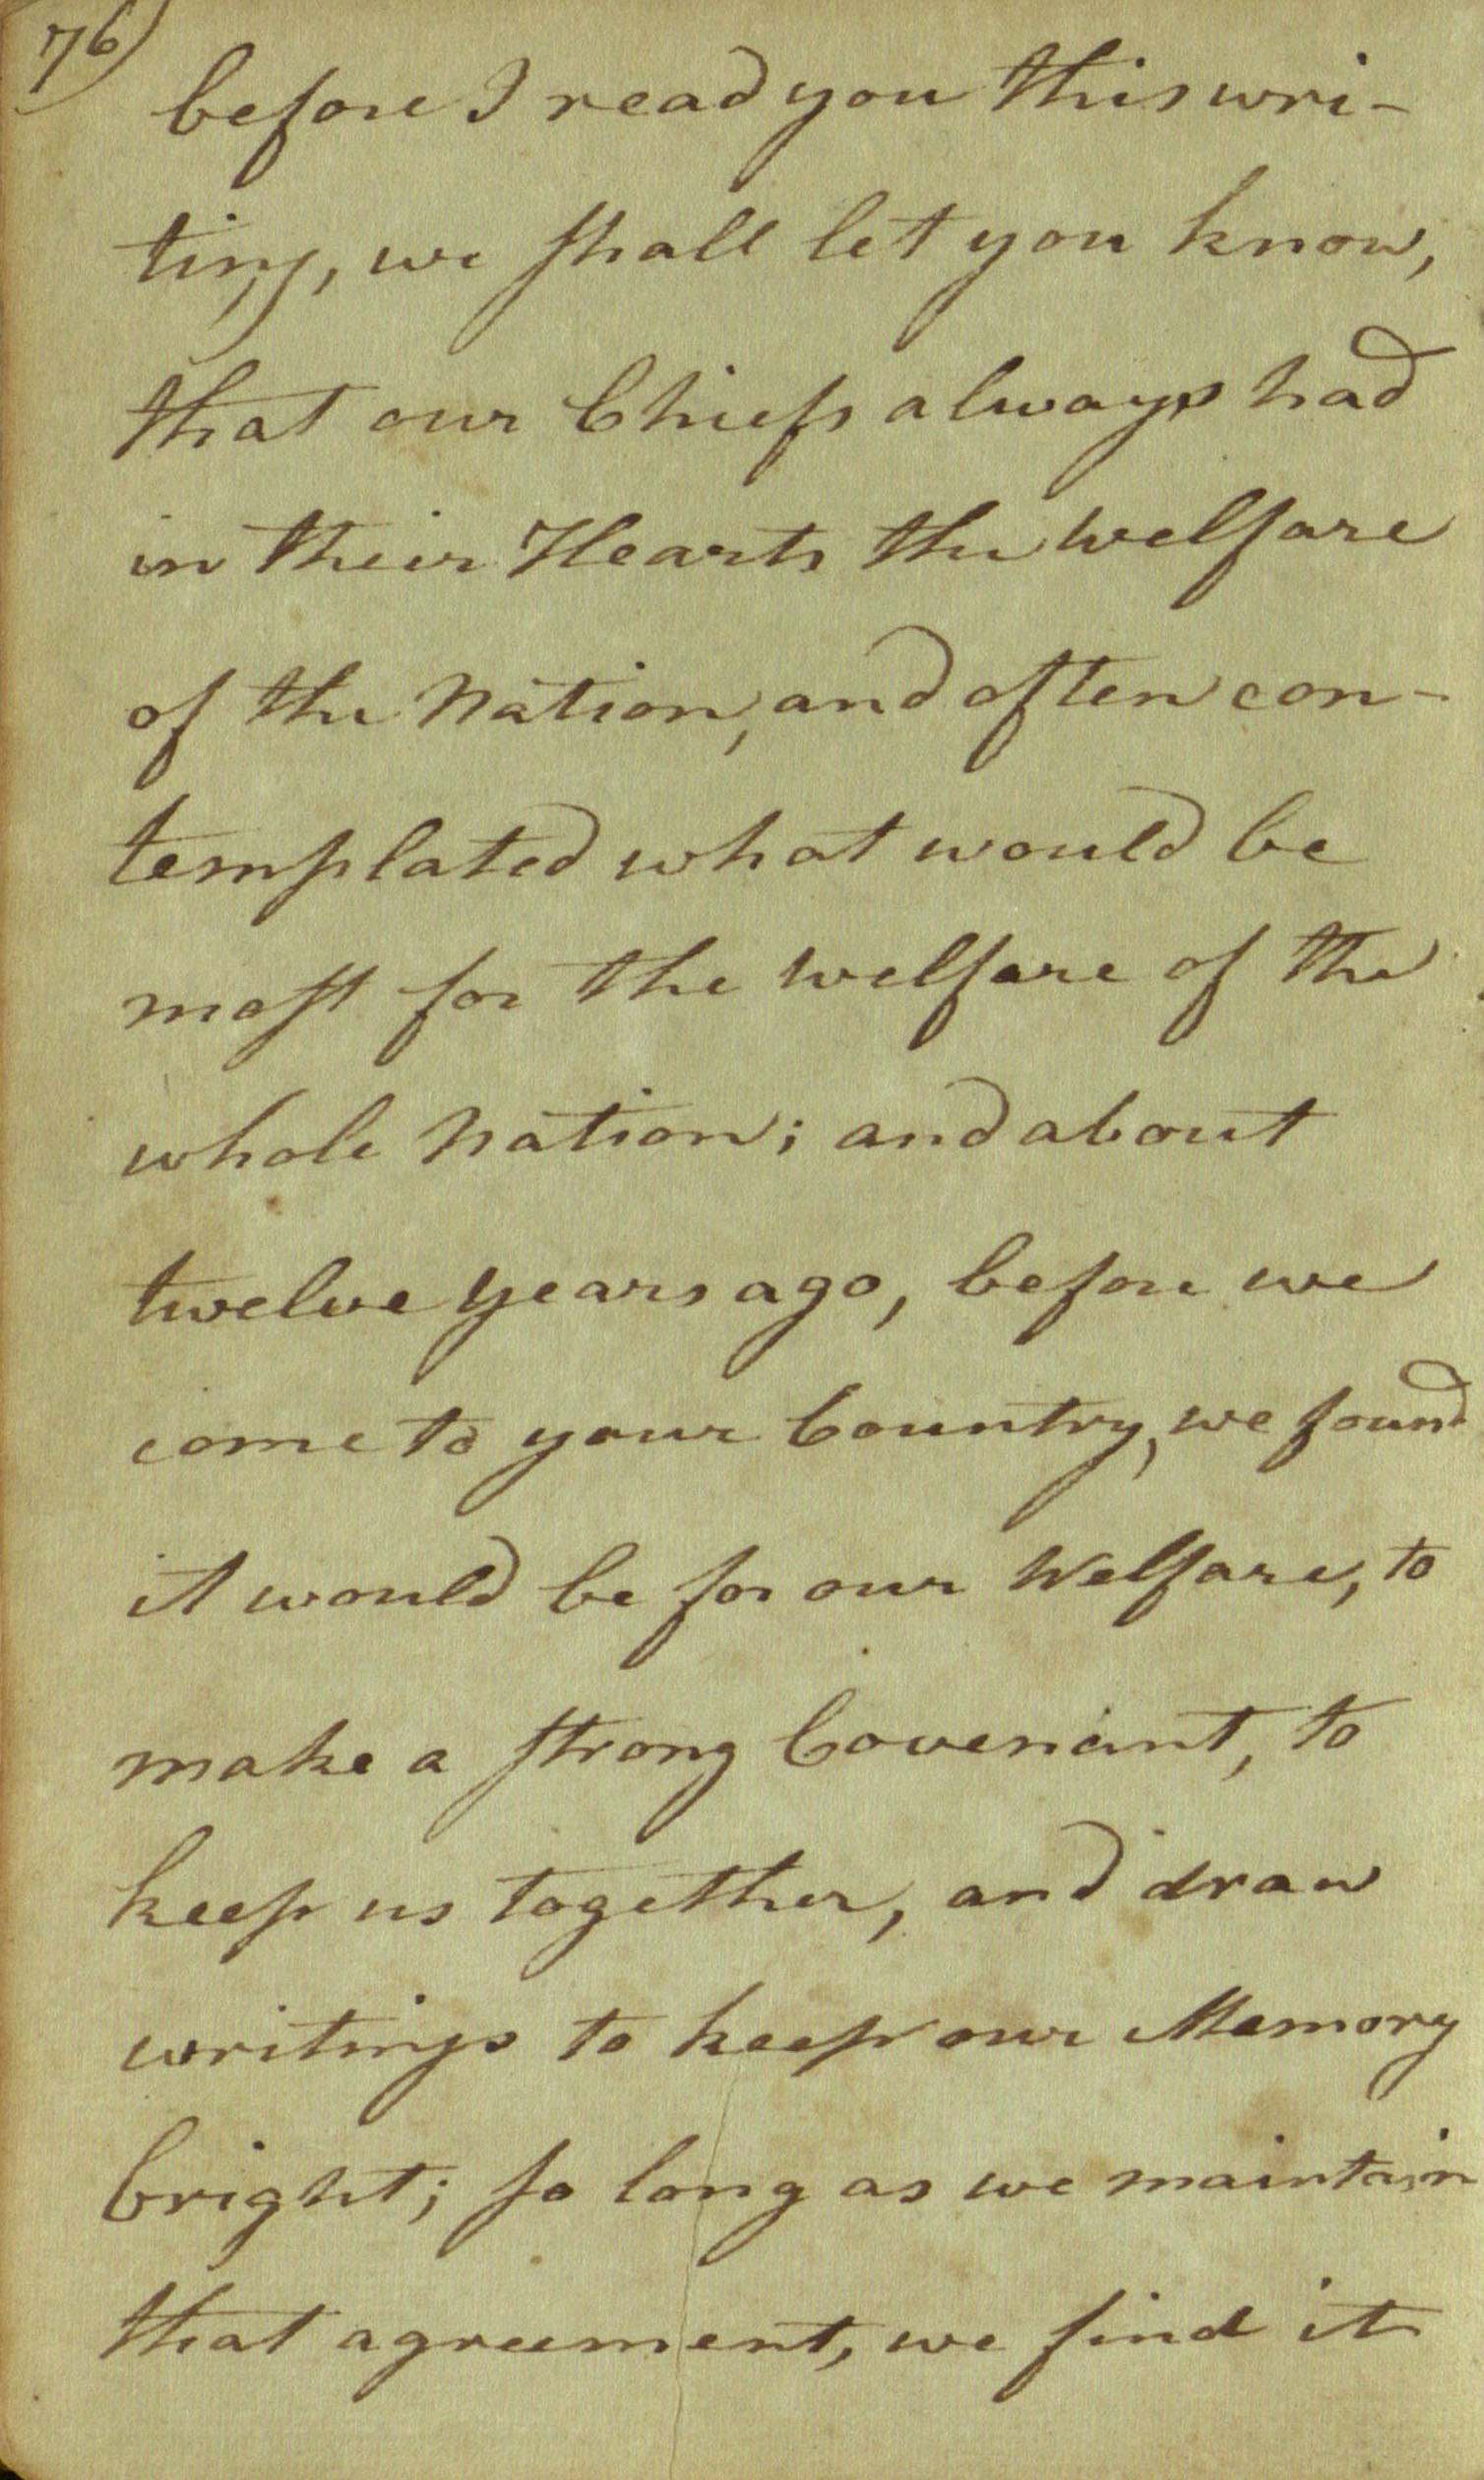 76)
before I read you this wri-
ting, we shall let you know,
that our Chiefs always had
in their Hearts the welfare
of the Nation, and often con-
templated what would be
most for the welfare of the
whole Nation; and about
twelve years ago, before we
come to your Country, we found
it would be for our Welfare, to
make a strong Covenant, to
keep us together, and draw
writings to keep our Memory
bright; so long as we maintain
that agreement, we find it